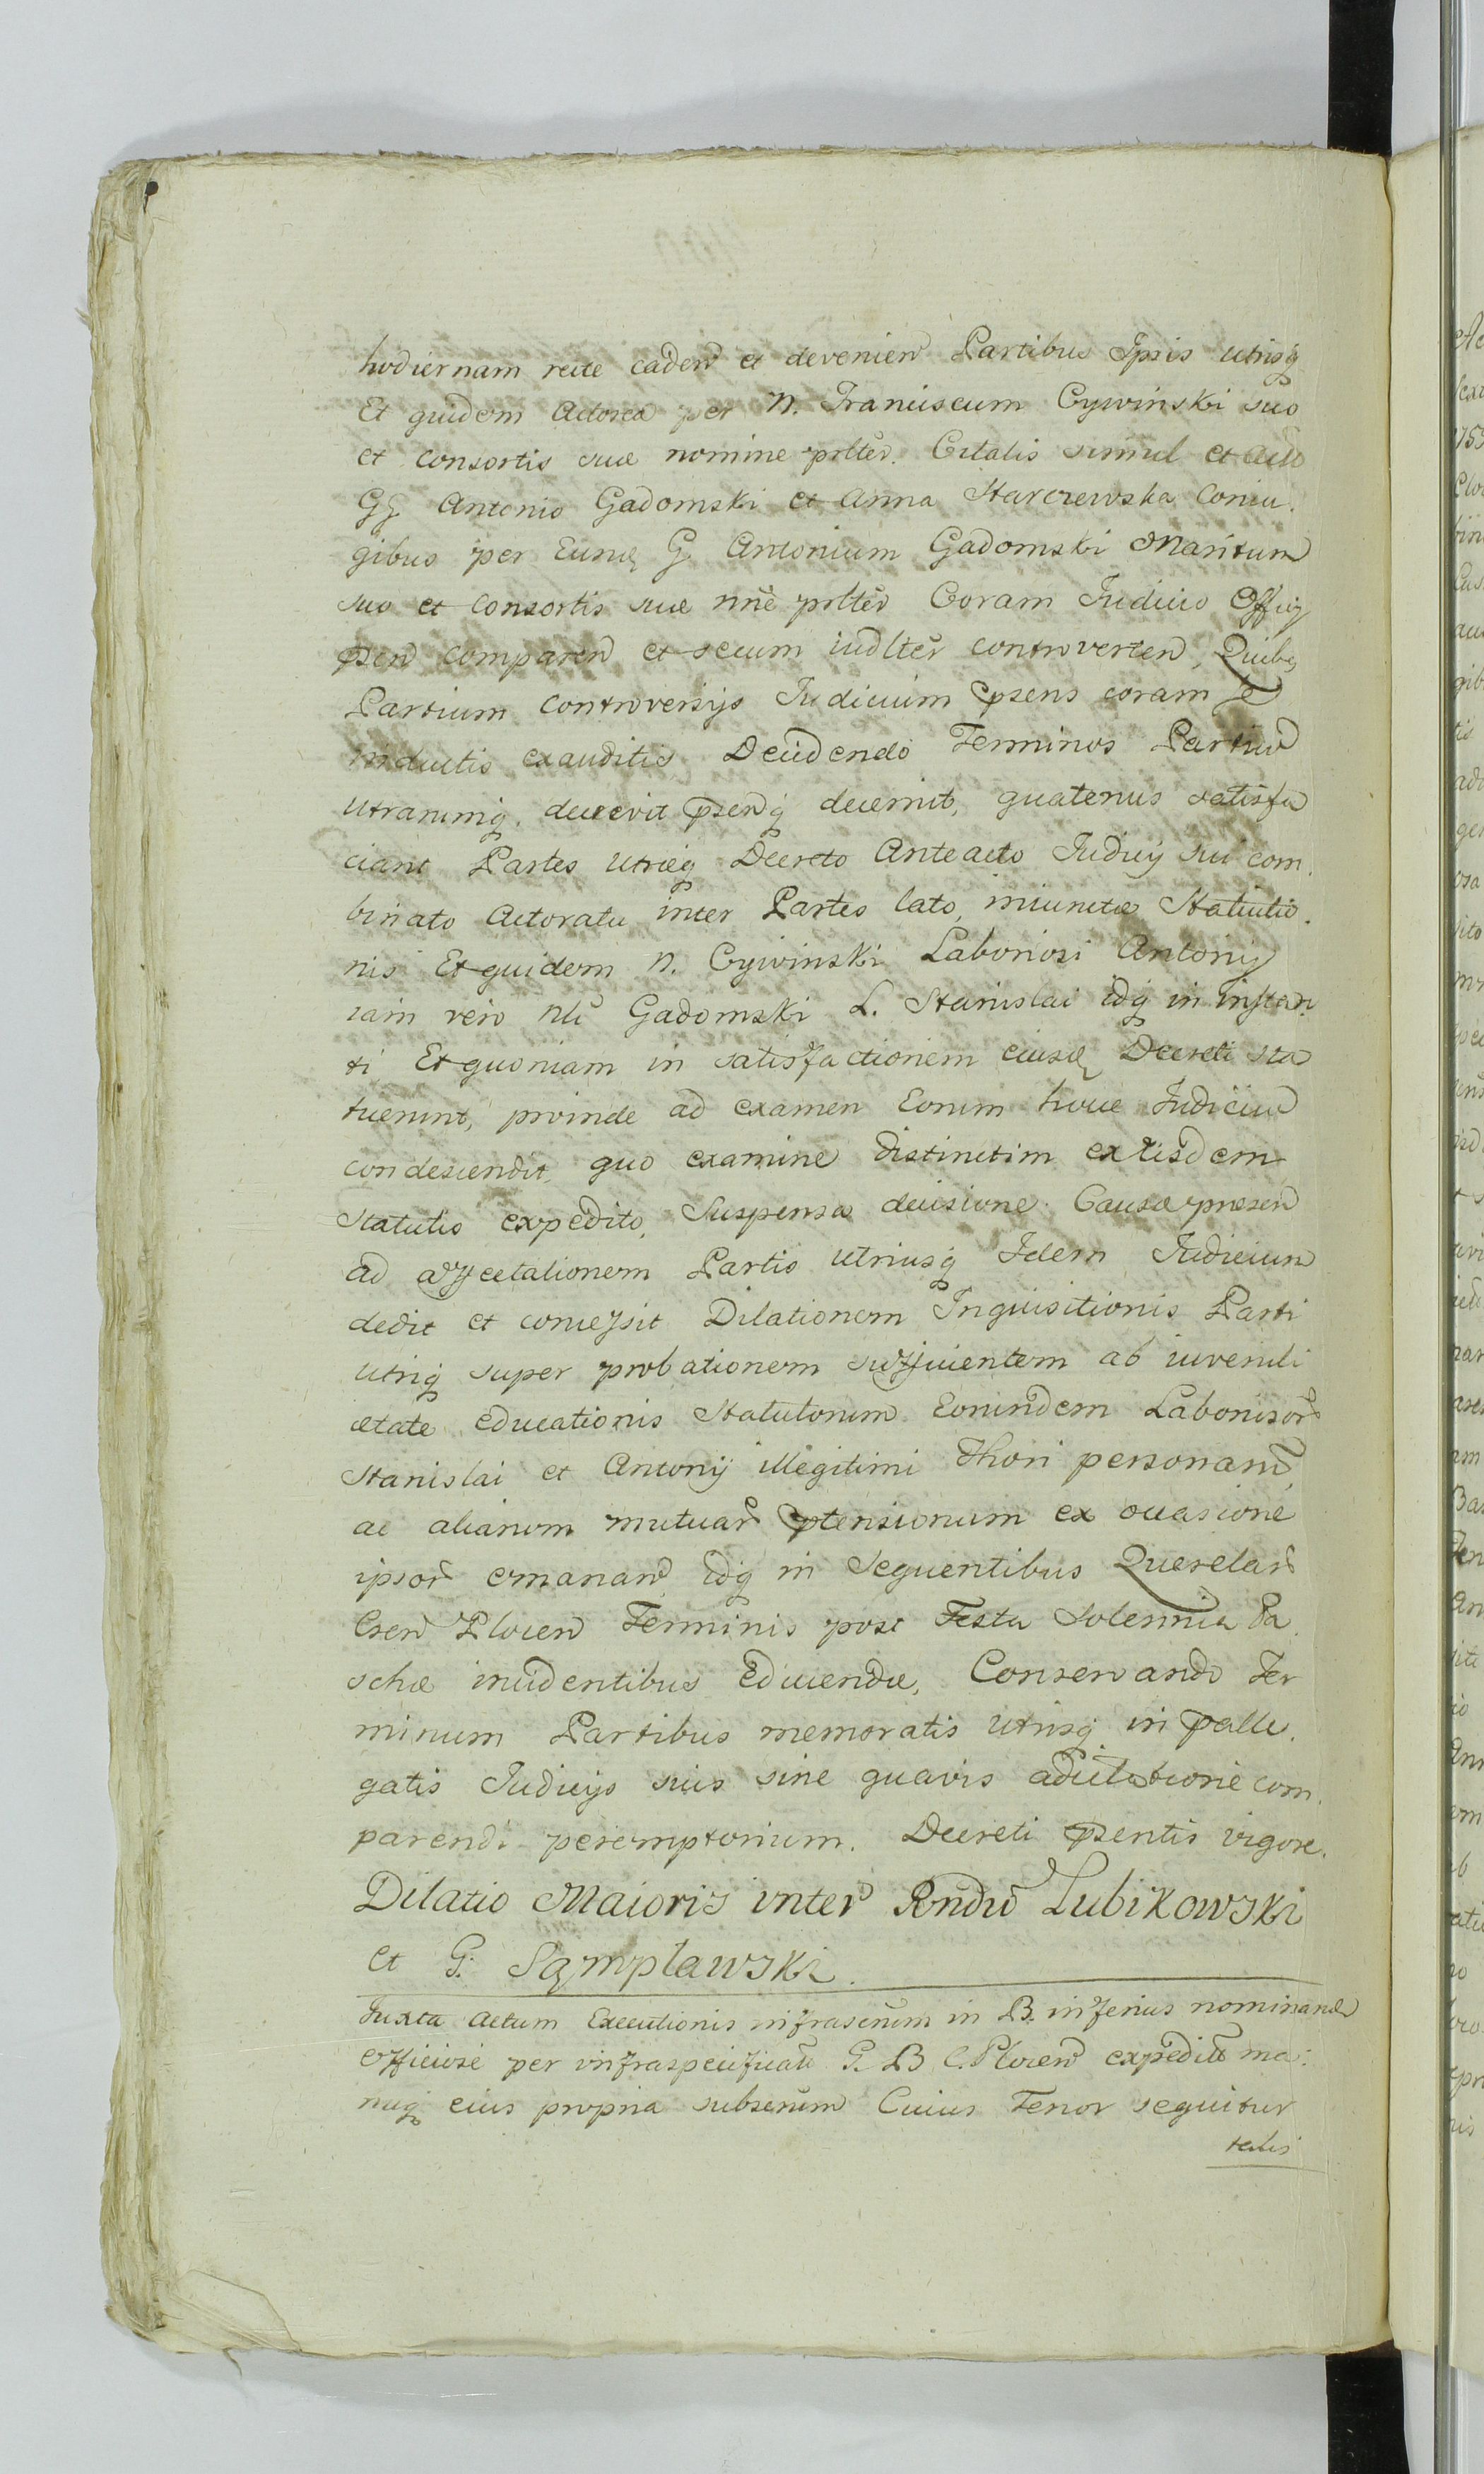 hodiernam recte caden et devenien Partibus Ipsis utrisq
Et quidem Actorea per N. Franciscum Cywinski suo
et Consortis suæ nomine prltēr. Citatis simul et Acto
GG Antonio Gadomski et Anna Starczewska Coniu.
gibus per Eund G Antonium Gadomski Maritum
suo et Consortis suæ nne prltēr Coram Iudicio Officij
psen comparen et secum iudltēr controverten, Quibq
Partium Controversijs Iudicium psens coram se
inductis exauditis Decidendo Terminos Partium
utrarumq. decrevit psenq decernit, quatenus satisfa
ciant Partes utræq Decreto Anteacto Iudicij sui com.
binato Actoratu inter Partes lato, iniunctæ Statutio.
nis Et quidem N. Cywinski Laboriosi Antonij
iam vero Nli Gadomski L. Stanislai idq in instan
ti Et quoniam in satisfactionem eiusd Decreti sta
tuerunt, proinde ad examen Eorum hocce Iudicium
condescendit, quo examine distinctim ex iisdem
Statutis expedito, Suspensa decisione Causæ præsen
ad affectationem Partis utriusq Idem Iudicium
dedit et concessit Dilationem Inquisitionis Parti
utriq super probationem sufficientem ab iuvenili
ætate educationis Statutorum Eorundem Laboriosor
Stanislai et Antonij illegitimi Thori personarū,
ac aliarum mutuar ptensionum ex occasione
ipsor emanan, idq in Sequentibus Querelar
Csen Plocen Terminis post Festa Solennia Pa.
schæ incidentibus Educendæ, Conservando Ter
minum Partibus memoratis utrisq in palle.
gatis Iudicijs suis sine quavis adcitatione com.
parendi peremptorium. Decreti psentis vigore.
Dilatio Maioris inter Rndū Lubikowski
et G. Sąmpławski.
Iuxta Actum Executionis infrascrum in B. inferius nominand
Officiose per infraspecificatū G. B C. Plocen expeditū ma.
nuq eius propria subscrum Cuius Tenor sequitur
talis